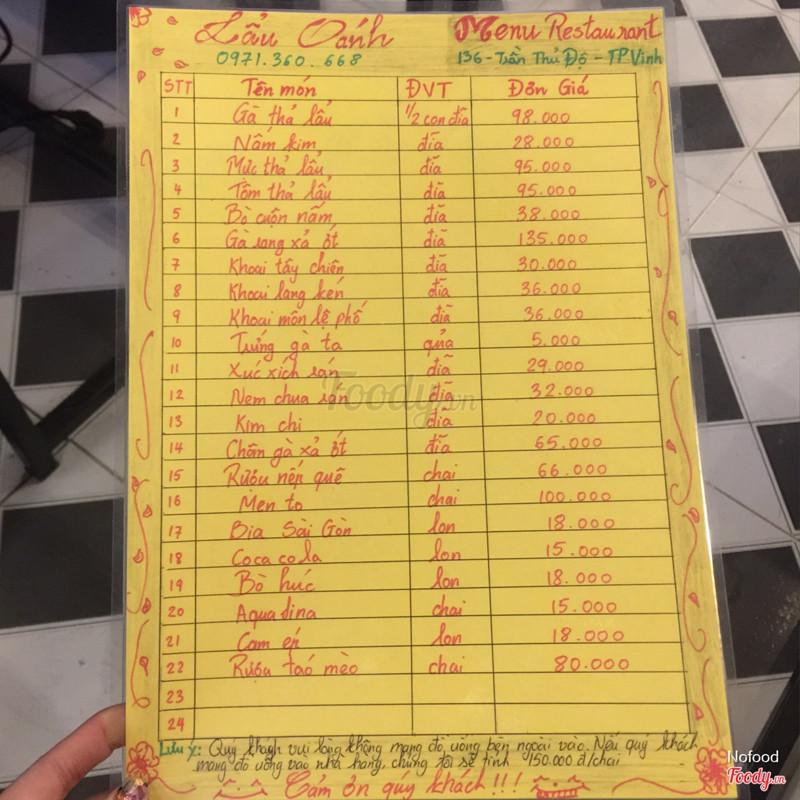 Lẩu Oánh
Menu Restaurant
0971.360.668
136 - Trần Thủ Độ - TP Vinh
STT Tên món ĐVT Đơn Giá
1 Gà thả lẩu 1/2 con đĩa 98.000
2 Nấm kim đĩa 28.000
3 Mực thả lẩu đĩa 95.000
4 Tôm thả lẩu đĩa 95.000
5 Bò cuộn nấm đĩa 38.000
6 Gà rang xả ớt đĩa 135.000
7 Khoai tây chiên đĩa 30.000
8 Khoai lang kén đĩa 36.000
9 Khoai môn lệ phố đĩa 36.000
10 Trứng gà ta quả 5.000
11 Xúc xích rán đĩa 29.000
12 Nem chua rán đĩa 32.000
13 Kim chi đĩa 20.000
14 Chân gà xả ớt đĩa 65.000
15 Rượu nếp quê chai 66.000
16 Men to chai 100.000
17 Bia Sài Gòn lon 18.000
18 Coca cola lon 15.000
19 Bò húc lon 18.000
20 Aquafina chai 15.000
21 Cam ép lon 18.000
22 Rượu táo mèo chai 80.000
23
24
Lưu ý: Quý khách vui lòng không mang đồ uống bên ngoài vào. Nếu quý khách
mang đồ uống vào nhà hàng, chúng tôi sẽ tính 150.000 đ/chai
Cảm ơn quý khách!!!
Foody.vn
Nofood
Foody.vn